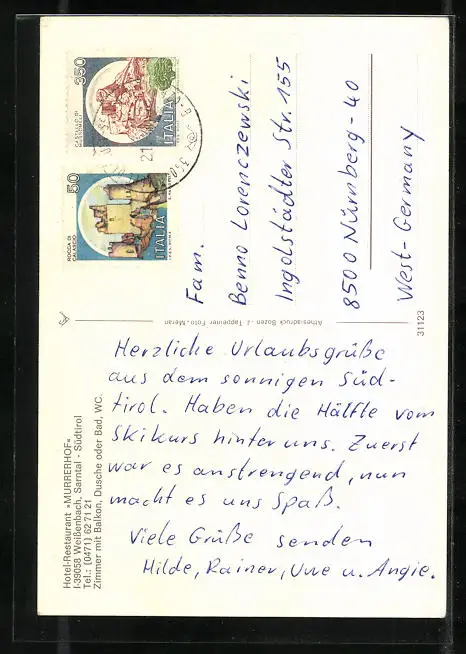 350
CASTELLO DI
ITALIA
50
ROCCA DI
CALASCIO
ITALIA
Fam.
Benno Lorenczewski
Ingolstädter Str. 155
8500 Nürnberg-40
West-Germany
Athesiadruck Bozen - J. Tappeiner Foto-Meran
31123
Herzliche Urlaubsgrüße
aus dem sonnigen Süd-
tirol. Haben die Hälfte vom
Skikurs hinter uns. Zuerst
war es anstrengend, nun
macht es uns Spaß.
Viele Grüße senden
Hilde, Rainer, Uwe u. Angie.
Hotel-Restaurant »MURRERHOF«
I-39058 Weißenbach, Sarntal - Südtirol
Tel.: (0471) 62 71 21
Zimmer mit Balkon, Dusche oder Bad, WC.